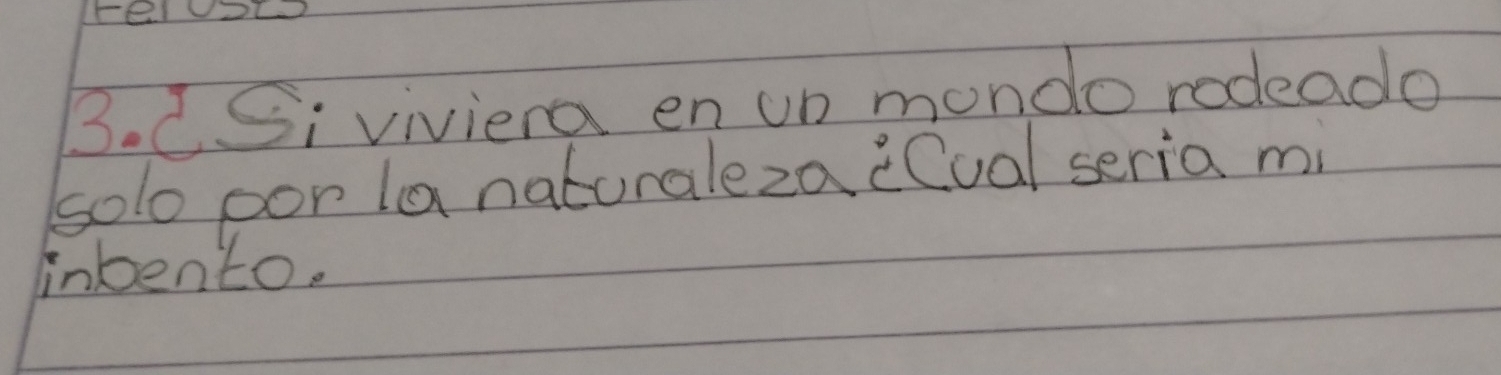 3.¿ Si viviera en un mundo rodeado
solo por la naturaleza ¿Cual seria mi
inbento.